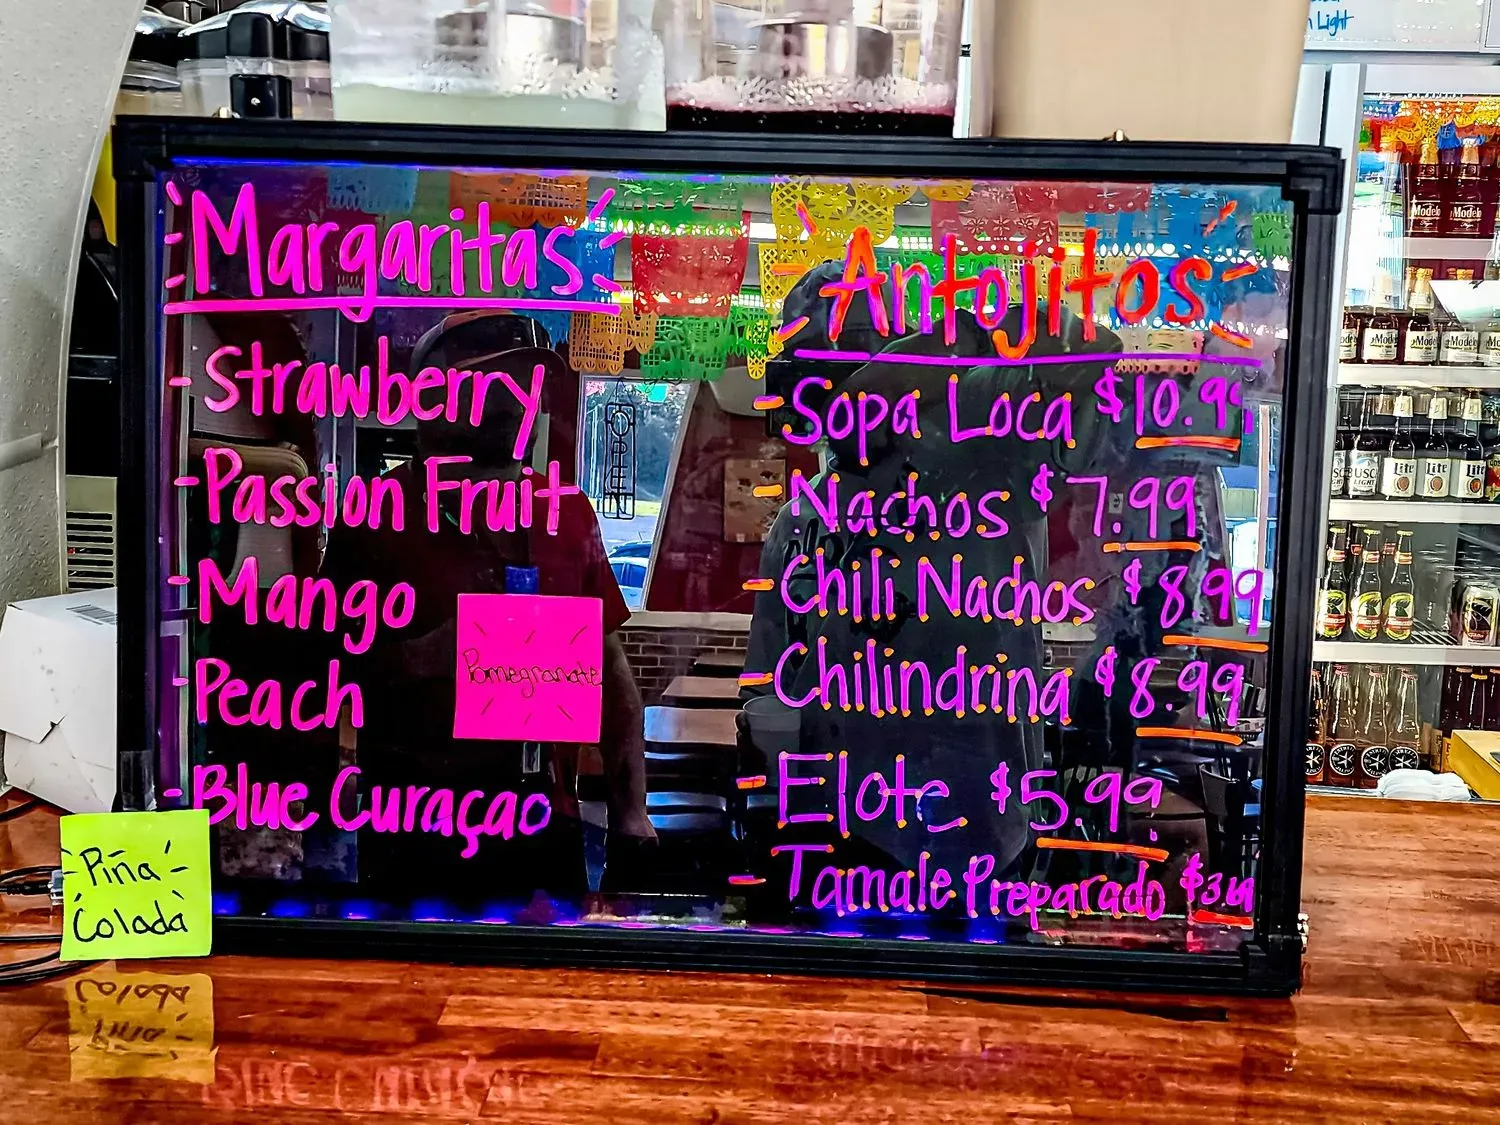 Margaritas
- Strawberry
- Passion Fruit
- Mango
- Peach
- Blue Curaçao
Pomegranate
Piña
Colada
Antojitos
- Sopa Loca $10.99
- Nachos $7.99
- Chili Nachos $8.99
- Chilindrina $8.99
- Elote $5.99
- Tamale Preparado
Light
Modelo
Modelo
Modelo
Modelo
Modelo
Lite
Lite
Lite